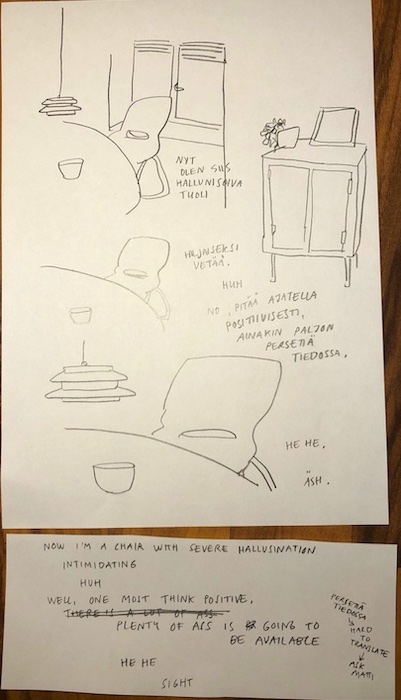 NYT
OLEN SIIS
HALLUNISOIVA
TUOLI
HILJAISEKSI
VETÄÄ.
HUH
NO, PITÄÄ AJATELLA
POSITIIVISESTI,
AINAKIN PALJON
PERSETTÄ
TIEDOSSA.
HE HE.
ÄSH.
NOW I'M A CHAIR WITH SEVERE HALLUSINATION
INTIMIDATING
HUH
WELL, ONE MOST THINK POSITIVE.
THERE IS A LOT OF ASS
PLENTY OF ASS IS GOING TO
BE AVAILABLE
HE HE
SIGHT
PERSETTÄ
TIEDOSSA
HARD
TO
TRANSLATE
ASK
MATTI